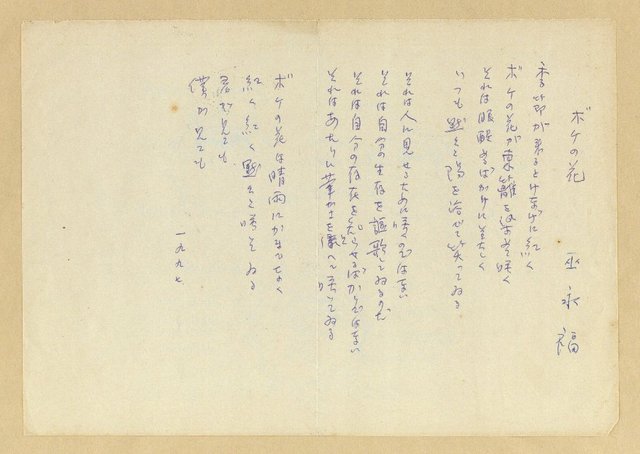 ボケの花
巫永福
季節が来るとけなげに紅く
ボケの花が東籬を沿ふて咲く
それは眼醒めばかりに美しく
いつも黙々と陽を浴びて笑ってゐる
それは人に見せるために咲くのではない
それは自分の生存を謳歌してゐるのだ
それは自分の存在を知らせるばかりではない
それはあたりに華かさを備へて咲いてゐる
ボケの花は晴雨にかまひなく
紅く紅く黙々と咲いてゐる
君が見ても
僕が見ても
一九九七